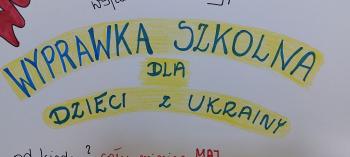 WYPRAWKA SZKOLNA
DLA
DZIECI Z UKRAINY
MAJ